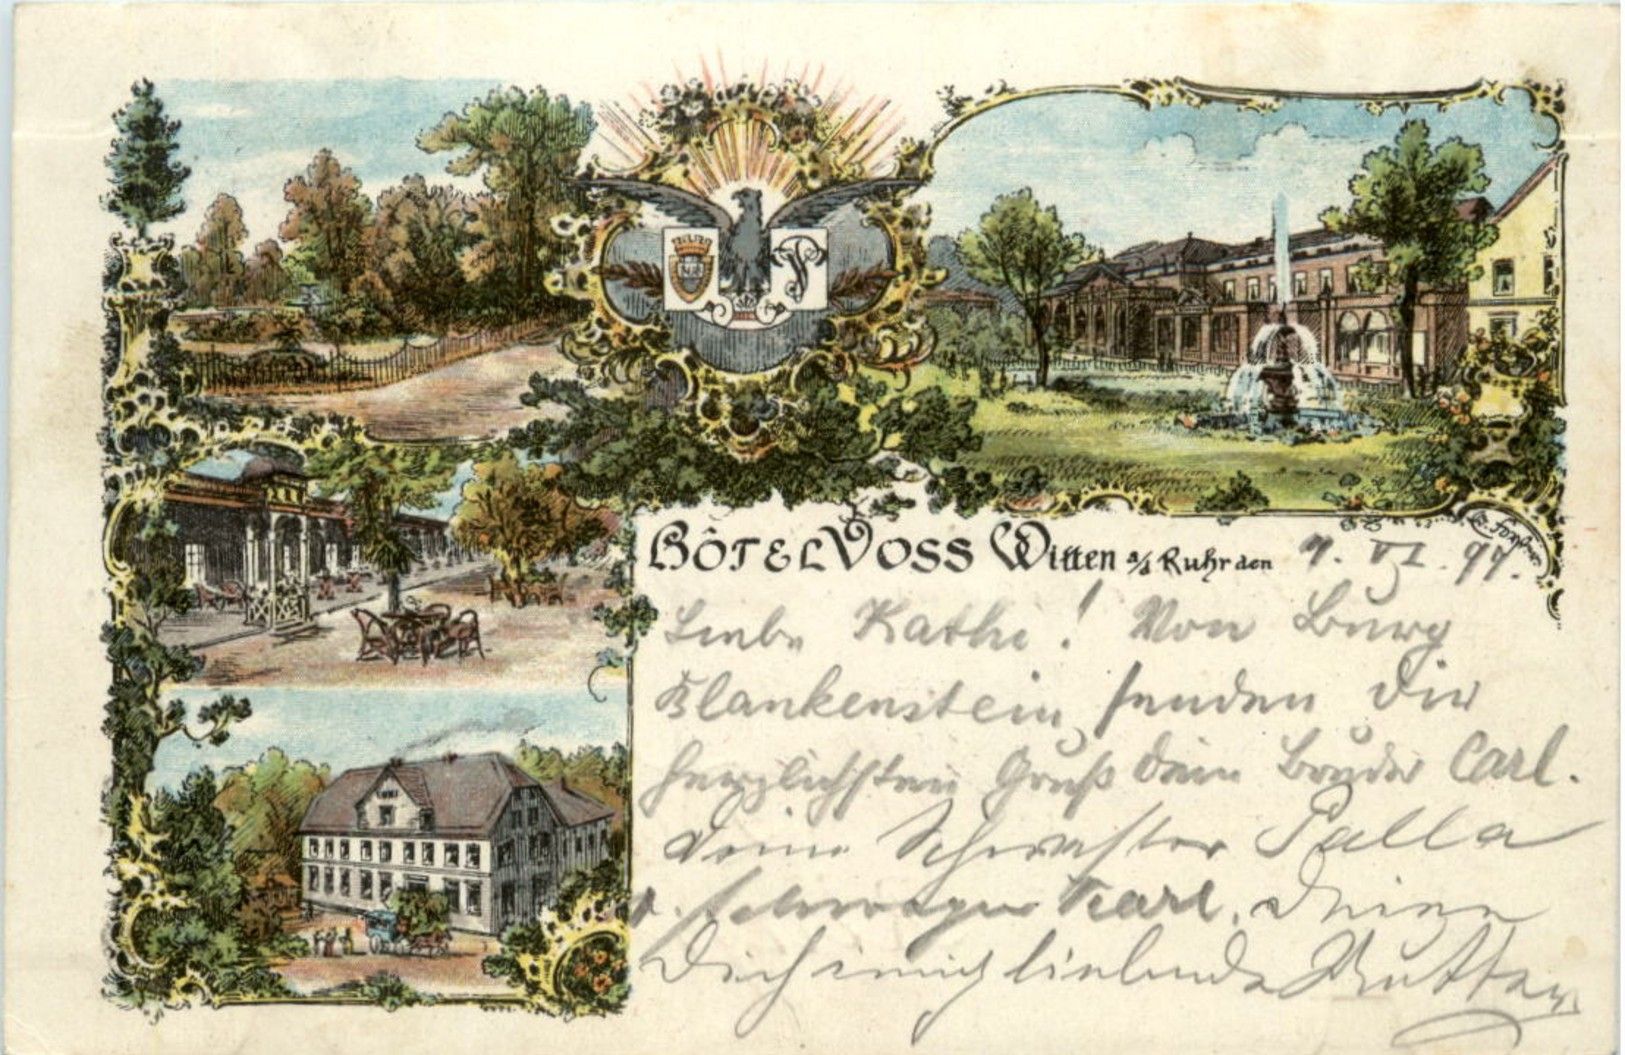 Hôtel Voss Witten a/d Ruhr den 7. VI. 97.
Liebe Kathe! Von Burg
Blankenstein senden Dir
herzlichsten Gruß Dein Bruder Carl.
deine Schwester Palla
u. Schwager Karl, Deine
Dich innig liebende Mutter